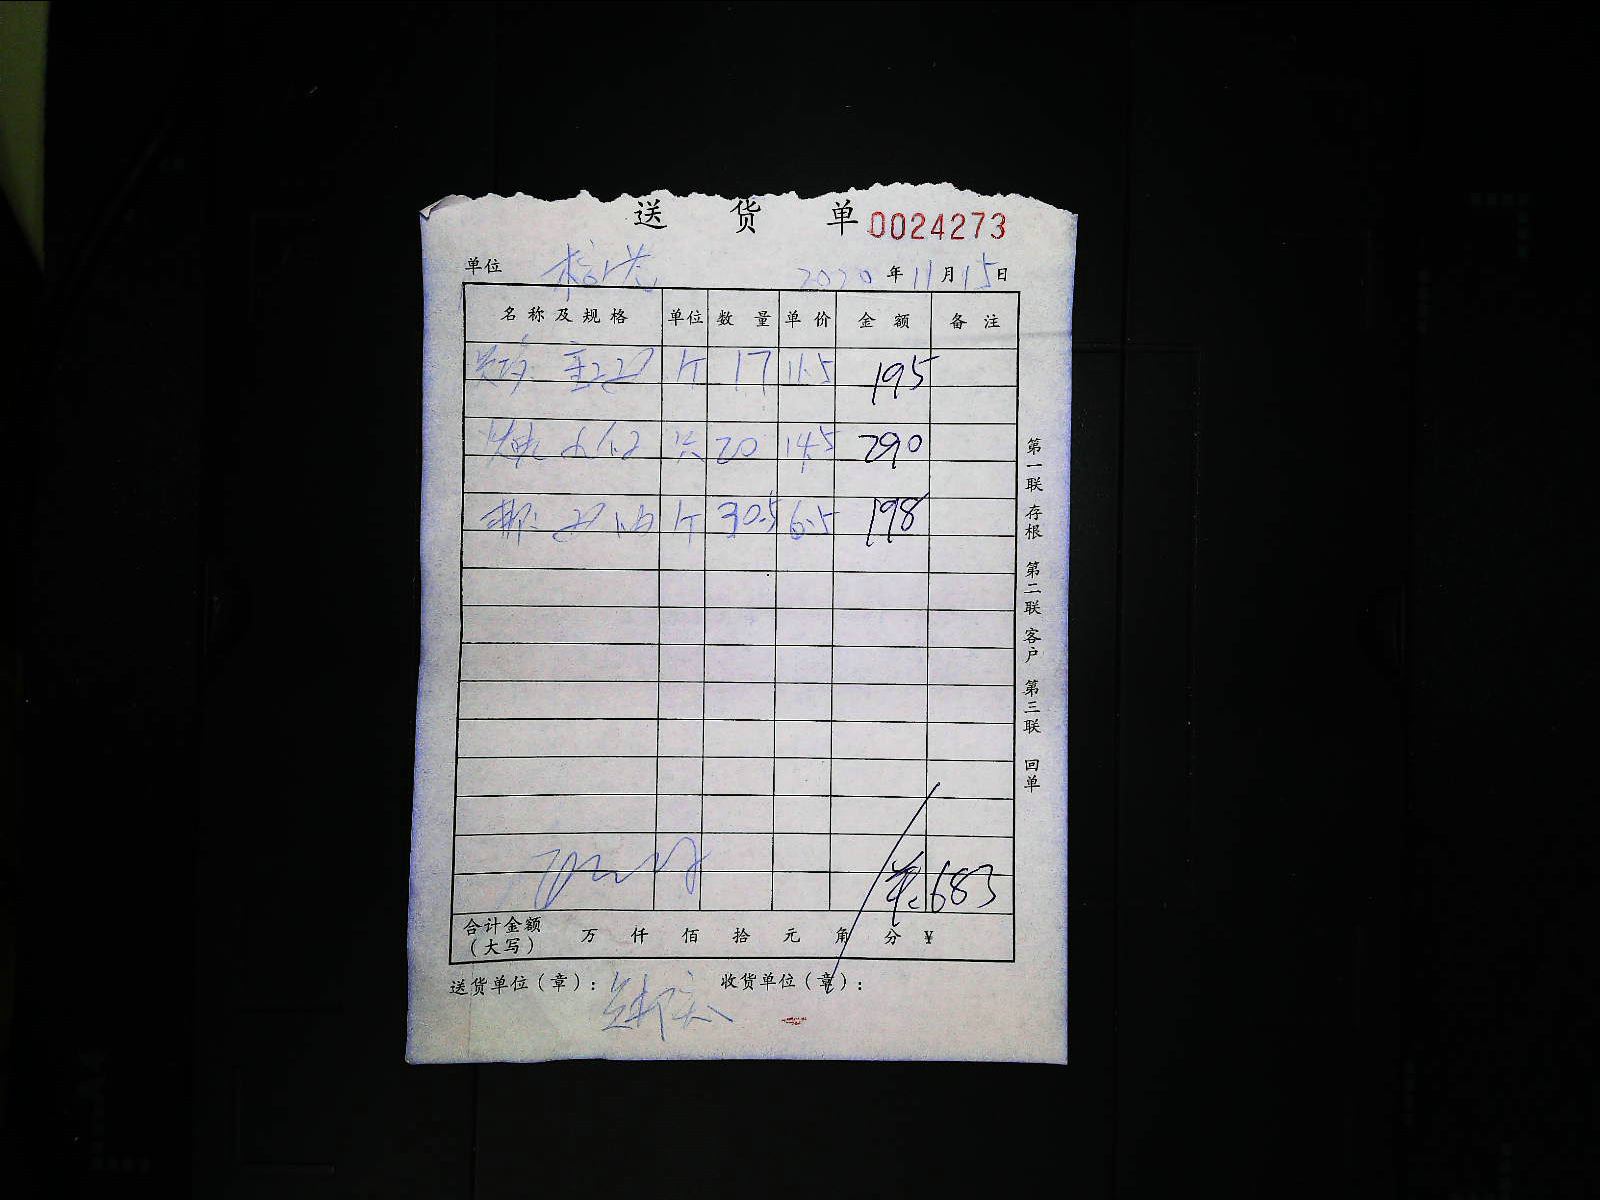 送货单 0024273
单位
2020年11月15日
名称及规格 单位 数量 单价 金额 备注
个 17 11.5 195
只 20 14.5 290
个 30.5 6.5 198
683
合计金额(大写) 万 仟 佰 拾 元 角 分 ¥
送货单位(章): 收货单位(章):
第一联 存根 第二联 客户 第三联 回单